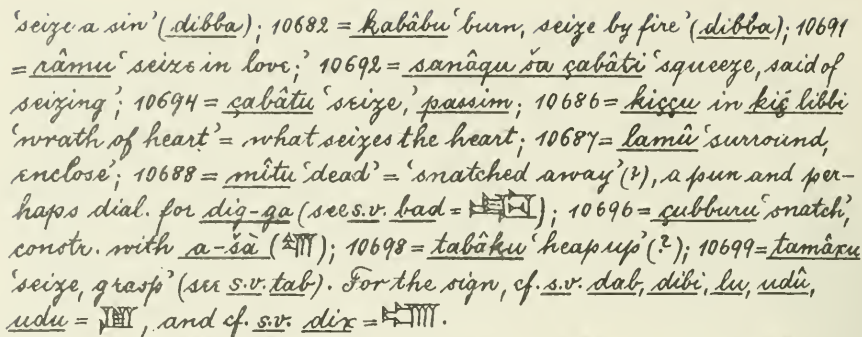 ‘seize a sin’ (dibba); 10682 = kabâbu ‘burn, seize by fire’ (dibba); 10691
= râmu ‘seize in love;’ 10692 = sanâqu ša çabâti ‘squeeze, said of
seizing’; 10694 = çabâtu ‘seize,’ passim; 10686 = kiççu in kiç libbi
‘wrath of heart’ = what seizes the heart; 10687 = lamû ‘surround,
enclose’; 10688 = mîtu ‘dead’ = ‘snatched away’ (?), a pun and per-
haps dial. for dig-ga (see s.v. bad = ); 10696 = çubburu ‘snatch’,
constr. with a-šà (); 10698 = tabâku ‘heap up’ (?); 10699 = tamâxu
‘seize, grasp’ (see s.v. tab). For the sign, cf. s.v. dab, dibi, lu, udû,
udu = , and cf. s.v. dix = .